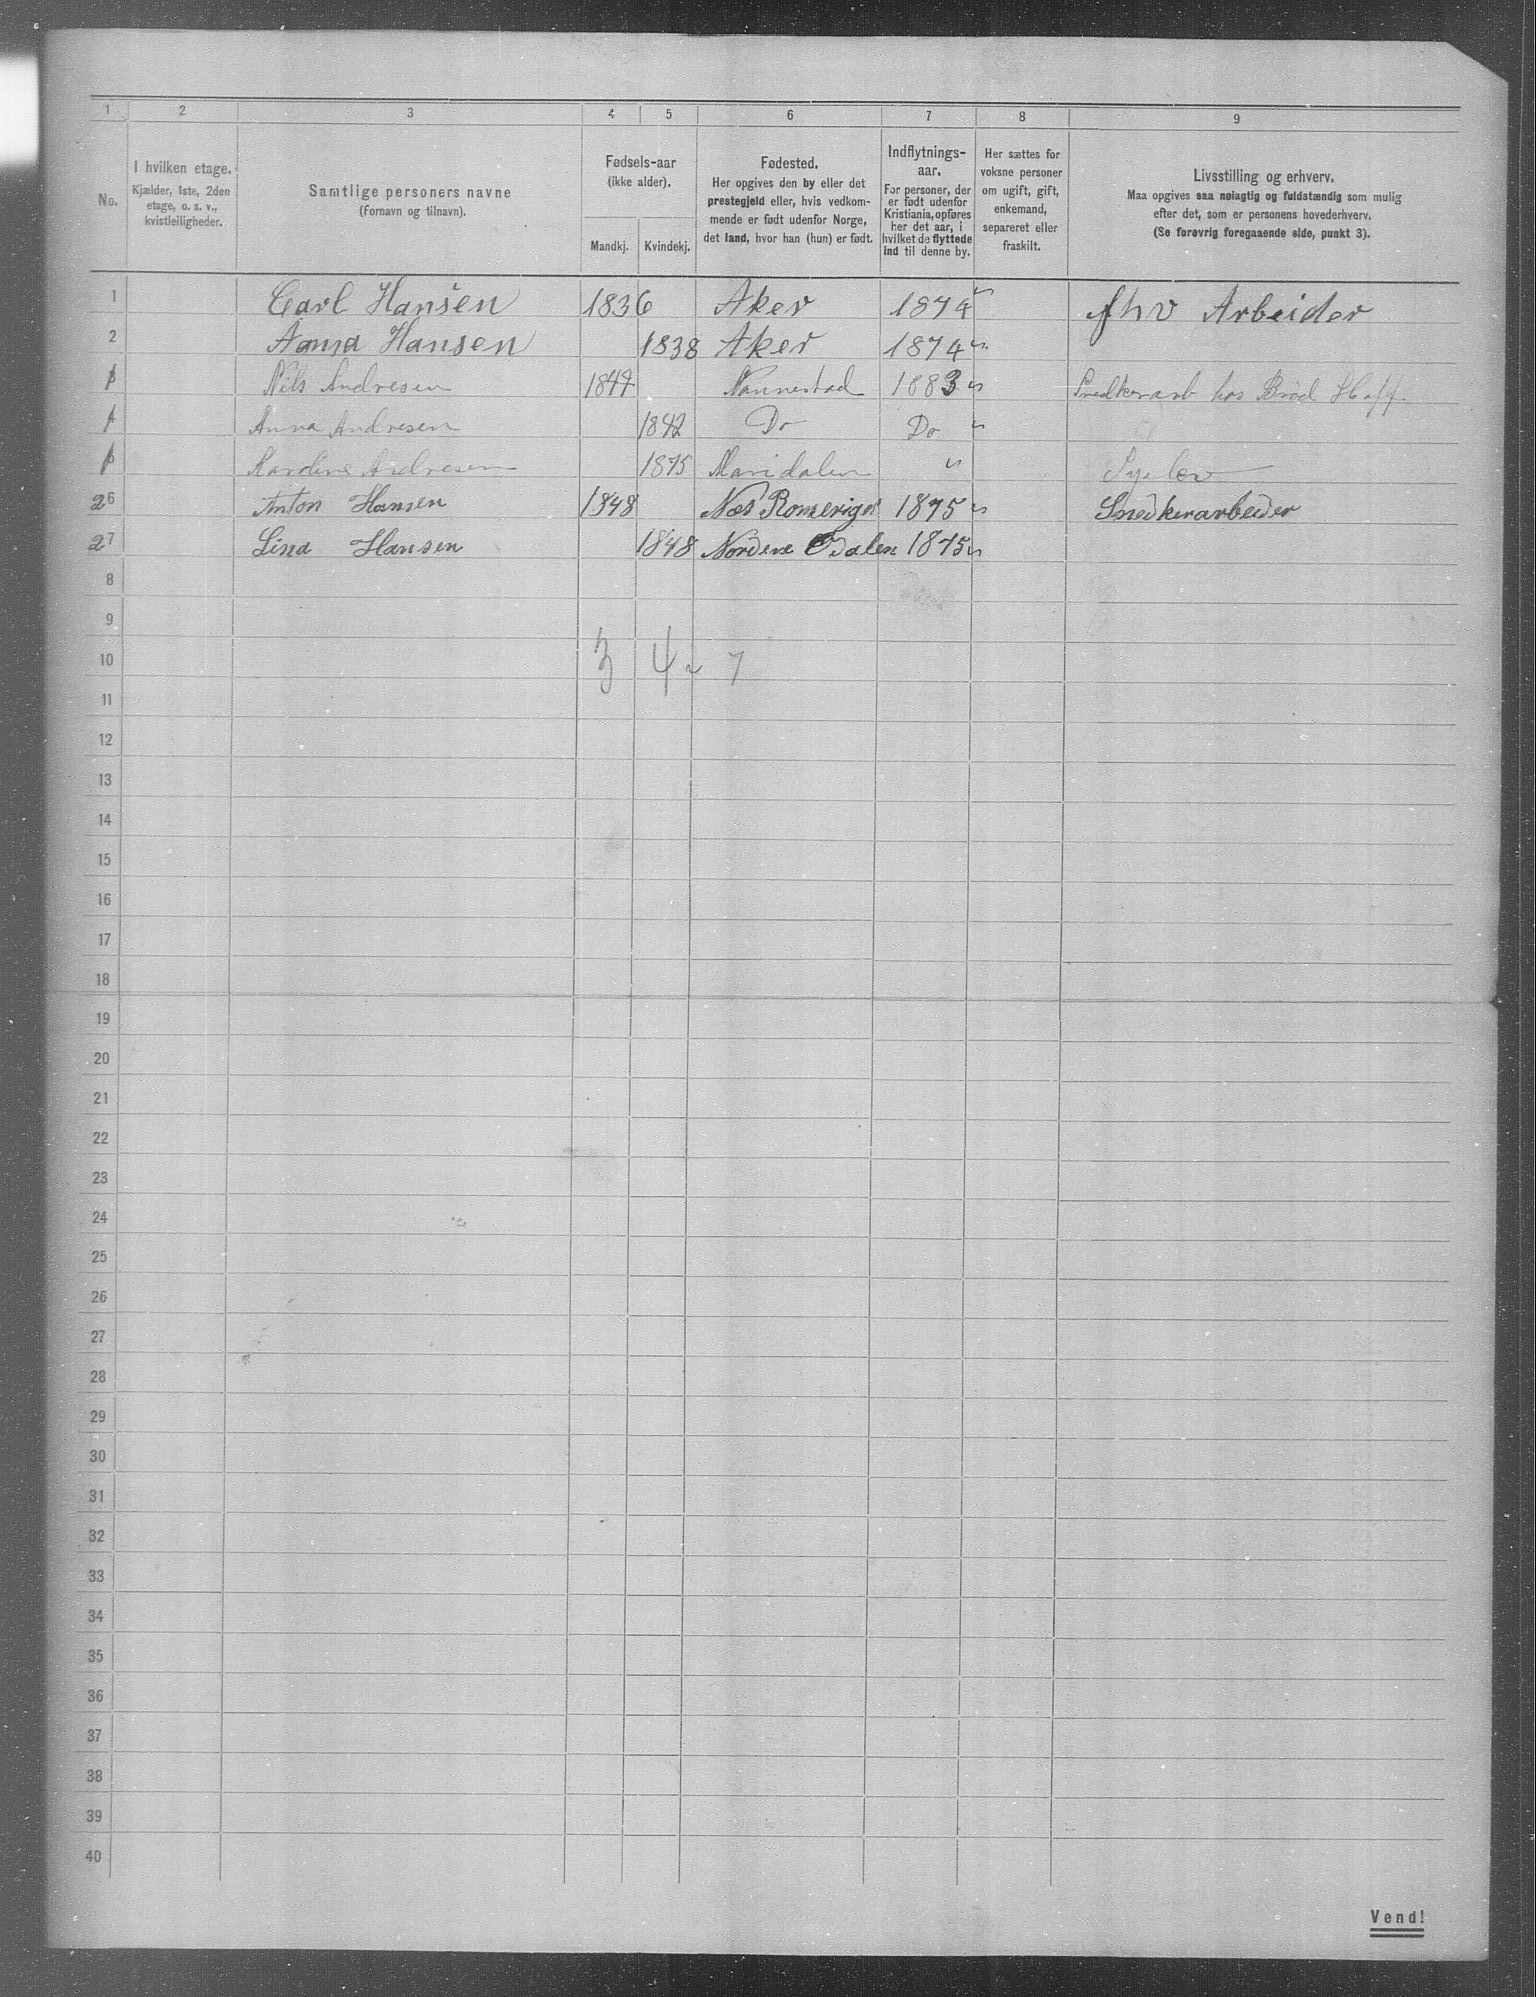 1 2 3 4 5 6 7 8 9
No.
I hvilken etage.
Kjælder, 1ste, 2den
etage, o. s. v.,
kvistleiligheder.
Samtlige personers navne
(Fornavn og tilnavn).
Fødsels-aar
(ikke alder).
Mandkj. Kvindekj.
Fødested.
Her opgives den by eller det
prestegjeld eller, hvis vedkom-
mende er født udenfor Norge,
det land, hvor han (hun) er født.
Indflytnings-
aar.
For personer, der
er født udenfor
Kristiania, opføres
her det aar, i
hvilket de flyttede
ind til denne by.
Her sættes for
voksne personer
om ugift, gift,
enkemand,
separeret eller
fraskilt.
Livsstilling og erhverv.
Maa opgives saa nøiagtig og fuldstændig som mulig
efter det, som er personens hovederhverv.
(Se forøvrig foregaaende side, punkt 3).
1 Carl Hansen 1836 Aker 1874 fhv Arbeider
2 Anna Hansen 1838 Aker 1874
Nils Andresen Nannestad 1883 Snedkerarb hos Brød Hoff.
Anna Andresen 1842 Do Do
Kardine Andresen 1875 Maridalen
26 Anton Hansen 1848 Nes Romerige 1875 Snedkerarbeider
27 Lina Hansen 1848 Nordere Odalen 1875
8
9
10 3 4 7
11
12
13
14
15
16
17
18
19
20
21
22
23
24
25
26
27
28
29
30
31
32
33
34
35
36
37
38
39
40
Vend!